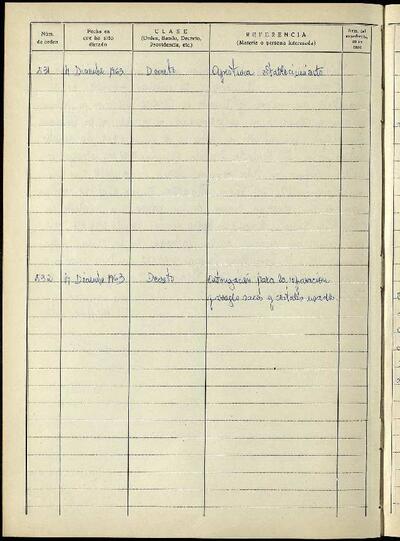 Núm. de orden
Fecha en que ha sido dictado
CLASE
(Orden, Bando, Decreto, Providencia, etc.)
REFERENCIA
(Materia o persona interesada)
Núm. del expediente, en su caso
531 4 Diciembre 1963 Decreto Apertura establecimiento
532 4 Diciembre 1963 Decreto Autorización para la reparación
y arreglo